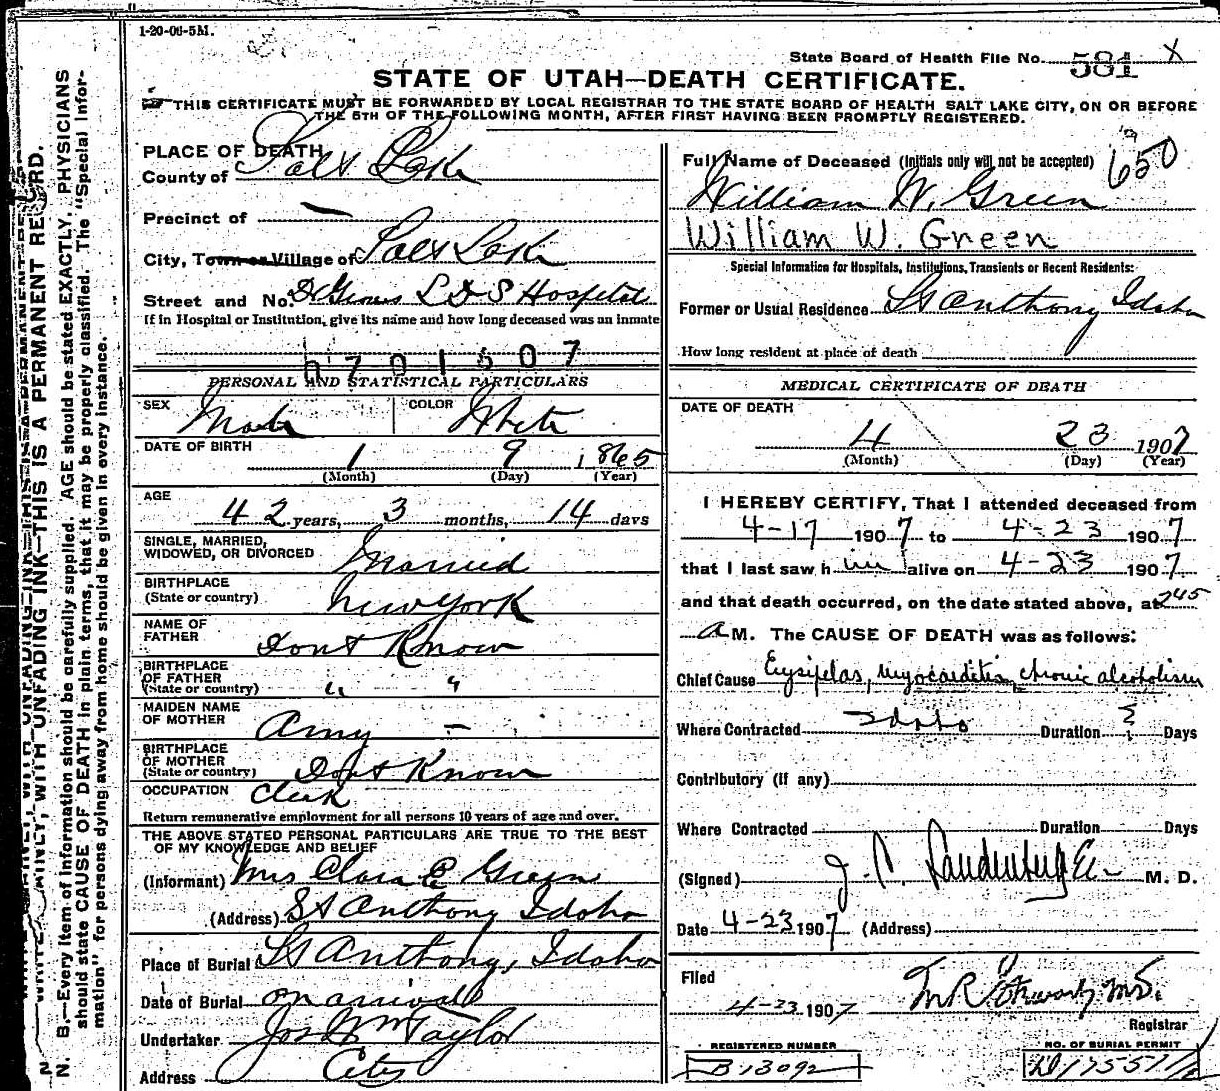 1-20-06-5M.
State Board of Health File No. 581 X
STATE OF UTAH—DEATH CERTIFICATE.
THIS CERTIFICATE MUST BE FORWARDED BY LOCAL REGISTRAR TO THE STATE BOARD OF HEALTH SALT LAKE CITY, ON OR BEFORE
THE 5TH OF THE FOLLOWING MONTH, AFTER FIRST HAVING BEEN PROMPTLY REGISTERED.
WRITE PLAINLY, WITH UNFADING INK—THIS IS A PERMANENT RECORD.
N. B.—Every item of information should be carefully supplied. AGE should be stated EXACTLY. PHYSICIANS
should state CAUSE OF DEATH in plain terms, that it may be properly classified. The "Special Infor-
mation" for persons dying away from home should be given in every instance.
PLACE OF DEATH
County of Salt Lake
Precinct of —
City, Town or Village of Salt Lake
Street and No. L D S Hospital
If in Hospital or Institution, give its name and how long deceased was an inmate
0701507
PERSONAL AND STATISTICAL PARTICULARS
SEX Male COLOR White
DATE OF BIRTH
1 9 1865
(Month) (Day) (Year)
AGE
42 years, 3 months, 14 days
SINGLE, MARRIED,
WIDOWED, OR DIVORCED Married
BIRTHPLACE
(State or country) New York
NAME OF
FATHER Dont Know
BIRTHPLACE
OF FATHER
(State or country) " "
MAIDEN NAME
OF MOTHER Amy —
BIRTHPLACE
OF MOTHER
(State or country) Dont Know
OCCUPATION Clerk
Return remunerative employment for all persons 10 years of age and over.
THE ABOVE STATED PERSONAL PARTICULARS ARE TRUE TO THE BEST
OF MY KNOWLEDGE AND BELIEF
(Informant) Mrs Clara E Green
(Address) St Anthony Idaho
Place of Burial St Anthony, Idaho
Date of Burial on arrival
Undertaker Jos Wm Taylor
Address City
Full Name of Deceased (Initials only will not be accepted) 650
William W. Green
William W. Green
Special Information for Hospitals, Institutions, Transients or Recent Residents:
Former or Usual Residence St Anthony Idaho
How long resident at place of death
MEDICAL CERTIFICATE OF DEATH
DATE OF DEATH
4 23 1907
(Month) (Day) (Year)
I HEREBY CERTIFY, That I attended deceased from
4-17 1907 to 4-23 1907
that I last saw him alive on 4-23 1907
and that death occurred, on the date stated above, at 245
A M. The CAUSE OF DEATH was as follows:
Chief Cause Erysipelas, myocarditis, chronic alcoholism
Where Contracted Idaho Duration ? Days
Contributory (if any)
Where Contracted Duration Days
(Signed) J. C. Landenberger M. D.
Date 4-23 1907 (Address)
Filed
4-23 1907
Registrar
REGISTERED NUMBER
B 13092
NO. OF BURIAL PERMIT